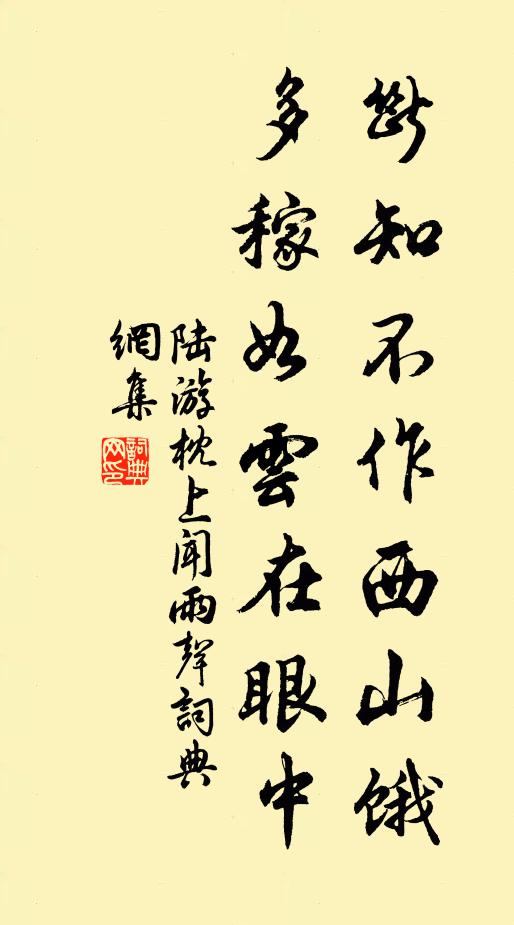 斷知不作西山餓
多稼如雲在眼中
陸游枕上聞雨聲詞典
網集
詞典
网印